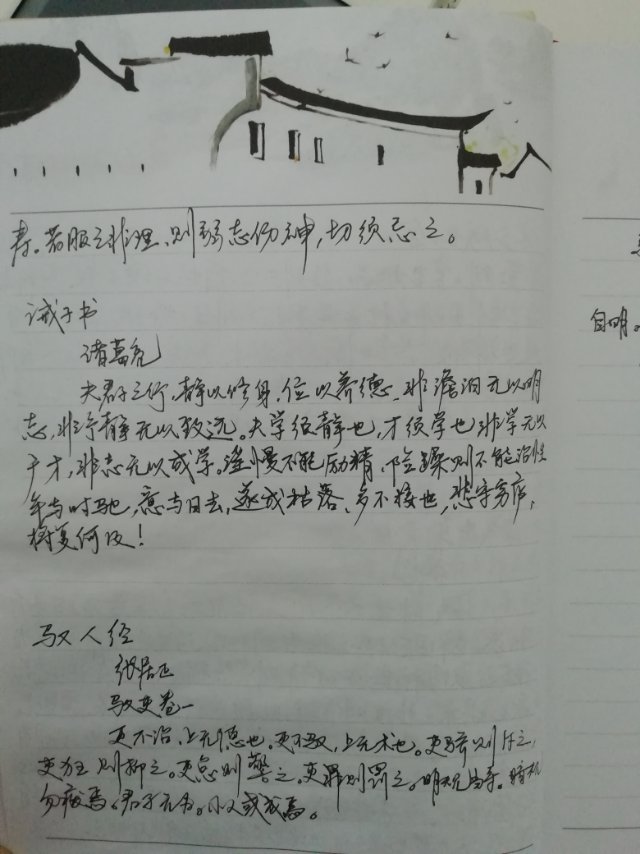 寿。若服之非理，则弱志伤神，切须忌之。
诫子书
诸葛亮
夫君子之行，静以修身，俭以养德。非澹泊无以明
志，非宁静无以致远。夫学须静也，才须学也，非学无以
广才，非志无以成学。淫慢不能励精，险躁则不能治性
年与时驰，意与日去，遂成枯落，多不接也，悲守穷庐，
将复何及！
驭人经
张居正
驭吏卷一
吏不治，上无德也。吏不驭，上无术也。吏骄则斥之，
吏狂则抑之。吏怠则警之。吏罪则罚之。明
勿疑焉。君子无为。小人或成焉。
自明。